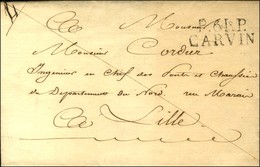 A Monsieur
P. 61. P.
CARVIN
Monsieur Cordier
Ingenieur en Chef des Ponts et Chaussées
du Departement du Nord, rue Marais
A Lille